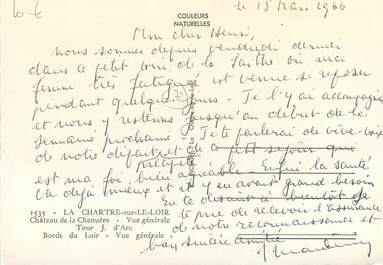 10 €
COULEURS
NATURELLES
le 15 Mars 1966
Mon cher Henri,
nous sommes depuis vendredi dernier
dans ce petit coin de la Sarthe où ma
femme très fatiguée est venue se reposer
pendant quelques jours - Je l'y ai accompagnée
et nous y resterons jusqu'au début de la
semaine prochaine - Je te parlerai de vive-voix
de notre départ et de ce petit séjour que
précipité
est ma foi bien agréable. Enfin la santé
va déjà mieux et il y en avait grand besoin
En te disant à bientôt je
te prie de recevoir l'assurance
de notre reconnaissance et
bien sincère amitié
1535 - LA CHARTRE-sur-LE LOIR
Château de la Chenuère - Vue générale
Tour J. d'Arc
Bords du Loir - Vue générale